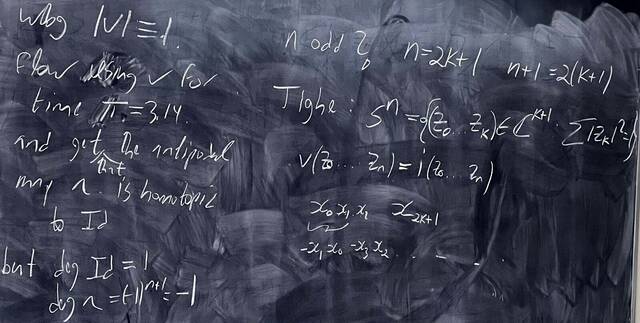 wlog |v| ≡ 1.
Flow using v for
time π = 3.14.
and get that the antipodal
map r is homotopic
to Id
but deg Id = 1
deg r = (-1)^{n+1} = -1
n odd? n = 2k+1 n+1 = 2(k+1)
Tighe: S^n = {(z_0 ... z_k) ∈ ℂ^{k+1} Σ|z_k|^2 = 1}
v(z_0 ... z_n) = i(z_0 ... z_n)
x_0 x_1 x_2 x_{2k+1}
-x_1 x_0 -x_3 x_2 . - - .